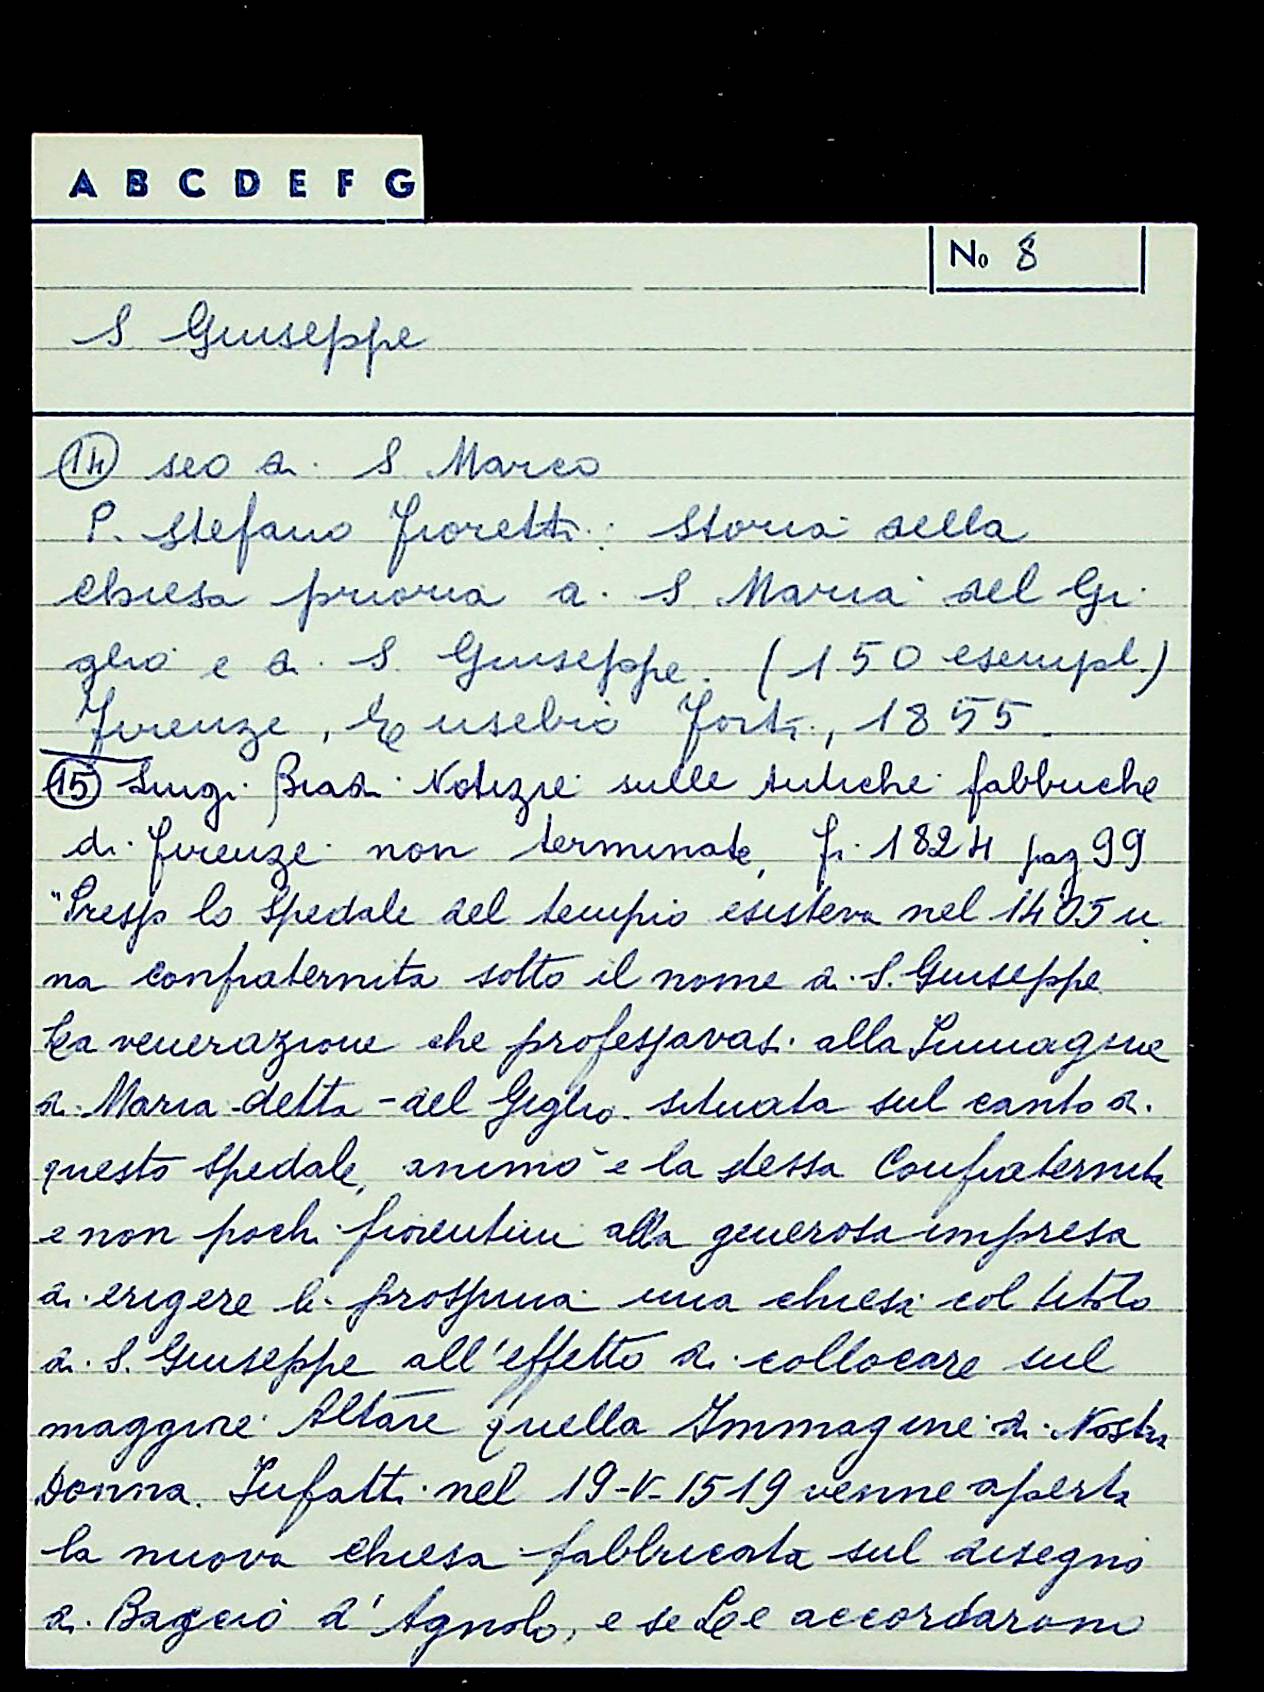 A B C D E F G
No 8
S Giuseppe
14 seo di S. Marco
P. Stefano Fioretti: Storia della
chiesa prioria di S Maria del Gi
glio e di S. Giuseppe. (150 esempl.)
Firenze, Eusebio Forti, 1855.
15 Luigi Biadi Notizie sulle Antiche fabbriche
di Firenze non terminate, Fi. 1824 pag 99
"Presso lo Spedale del tempio esisteva nel 1405 u
na confraternita sotto il nome di S. Giuseppe
La venerazione che professavasi alla Immagine
di Maria detta - del Giglio situata sul canto di
questo Spedale, animò e la stessa Confraternita
e non pochi fiorentini alla generosa impresa
di erigere li prossima una chiesa col titolo
di S. Giuseppe all'effetto di collocare sul
maggiore Altare quella Immagine di Nostra
Donna. Infatti nel 19-V-1519 venne aperta
la nuova chiesa fabbricata sul disegno
di Baccio d'Agnolo, e se Le accordarono